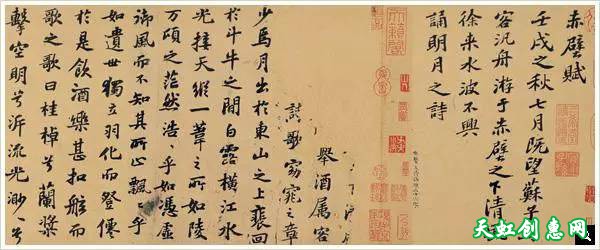 赤壁賦
壬戌之秋七月既望蘇子
客汎舟游于赤壁之下清
徐来水波不興
誦明月之詩
舉酒属客
歌窈窕之章
少焉月出於東山之上裵回
於斗牛之間白露橫江水
光接天縱一葦之所如陵
万頃之茫然浩〻乎如憑虛
御風而不知其所止飄〻乎
如遺世獨立羽化而登僊
於是飲酒樂甚扣舷而
歌之歌曰桂棹兮蘭槳
擊空明兮泝流光渺〻兮
天虹创惠网